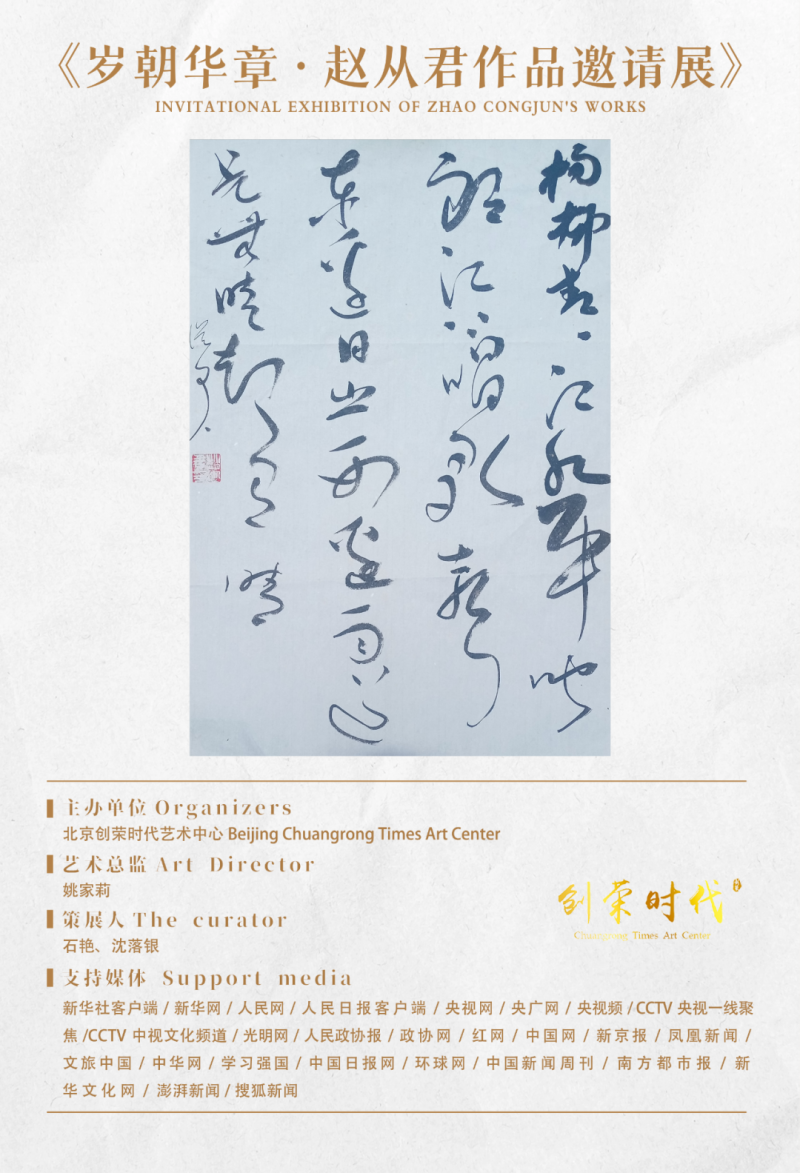 《岁朝华章·赵从君作品邀请展》
INVITATIONAL EXHIBITION OF ZHAO CONGJUN'S WORKS
杨柳青青江水平
郎江上唱歌声
东边日出西边雨道
是无晴却有晴
从君
主办单位 Organizers
北京创荣时代艺术中心 Beijing Chuangrong Times Art Center
艺术总监 Art Director
姚家莉
策展人 The curator
石艳、沈落银
创荣时代
Chuangrong Times Art Center
支持媒体 Support media
新华社客户端 / 新华网 / 人民网 / 人民日报客户端 / 央视网 / 央广网 / 央视频 / CCTV 央视一线聚
焦 /CCTV 中视文化频道 / 光明网 / 人民政协报 / 政协网 / 红网 / 中国网 / 新京报 / 凤凰新闻 /
文旅中国 / 中华网 / 学习强国 / 中国日报网 / 环球网 / 中国新闻周刊 / 南方都市报 / 新
华文化网 / 澎湃新闻 / 搜狐新闻